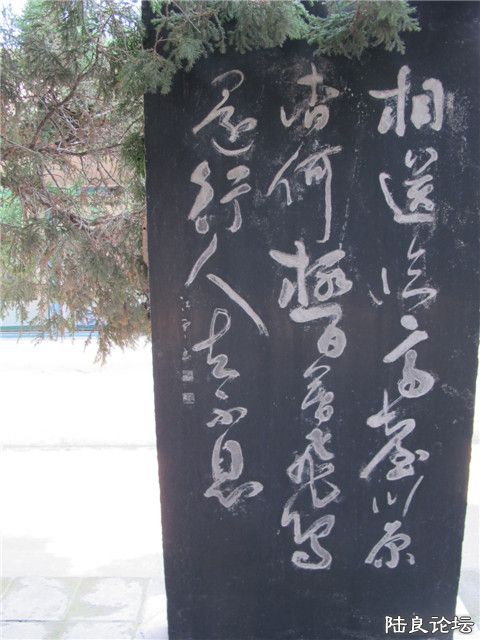 相送临高台川原
杳何极日暮飞鸟
还行人去不息
陆良论坛